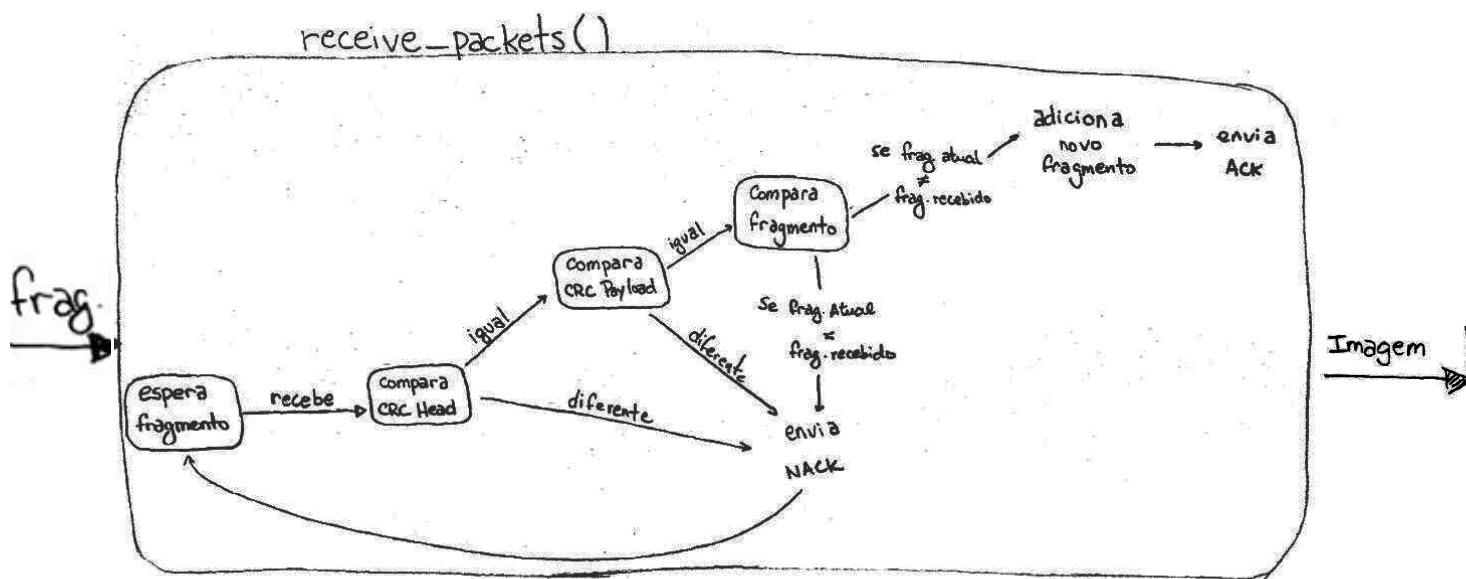 receive_packets()
frag.
espera
fragmento
recebe
Compara
CRC Head
igual
diferente
Compara
CRC Payload
igual
diferente
Compara
fragmento
se frag. atual
≠
frag. recebido
adiciona
novo
fragmento
envia
ACK
Se frag. Atual
=
frag. recebido
envia
NACK
Imagem